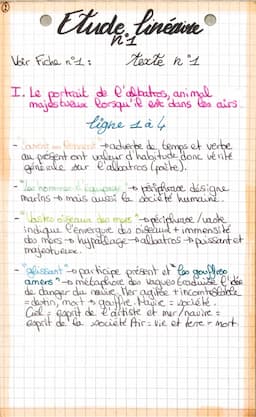 Etude linéaire
n°1
Voir Fiche n°1 : texte n°1
I. Le portrait de l'albatros, animal
majestueux lorsqu'il est dans les airs
ligne 1 à 4
- "Souvent" → adverbe de temps et verbe
au présent ont valeur d'habitude donc vérité
générale sur l'albatros (poète).
- "les hommes d'équipage" → périphrase désigne
marins → mais aussi la société humaine.
- "Vastes oiseaux des mers" → périphrase / vaste
indique l'envergure des oiseaux + immensité
des mers → hypallage → albatros → puissant et
majestueux.
- "glissant" → participe présent et "les gouffres
amers" → métaphore des vagues traduise l'idée
de danger du navire. Mer agitée + incontrôlable
= destin, mort → gouffre. Navire = société.
Ciel = esprit de l'artiste et mer/navire =
esprit de la société Air = vie et terre = mort